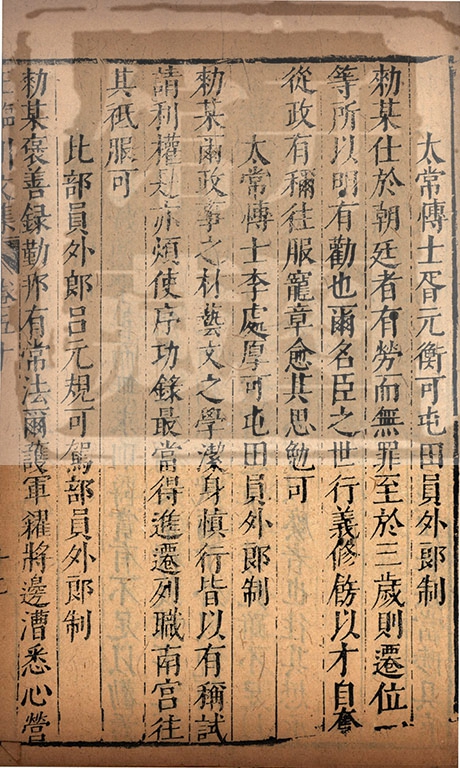 太常愽士胥元衡可屯田員外郎制
勑某仕於朝廷者有勞而無罪至於三歲則遷位
等所以明有勸也爾名臣之世行義修飭以才自奮
從政有稱徃服寵章愈其思勉可
太常愽士李處厚可屯田員外郎制
勑某爾政事之材藝文之學潔身慎行皆以有稱試
請利權是亦煩使序功錄最當得進遷列職南宫往
其祗服可
比部員外郎吕元規可駕部員外郎制
勑某褒善録勤邦有常法爾護軍糴將邊漕悉心營
臨川文集 卷五十